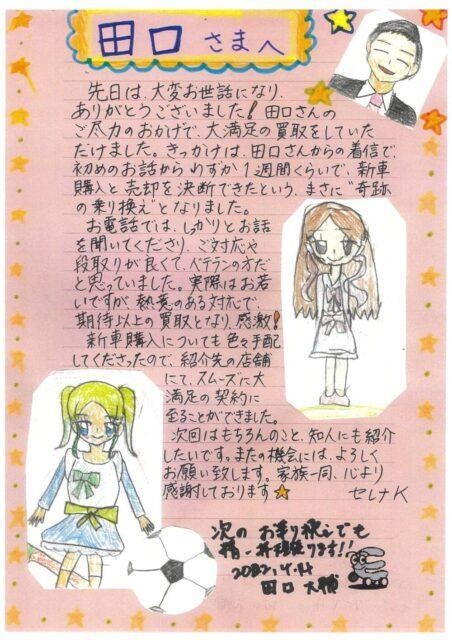 田口さまへ
先日は、大変お世話になり、
ありがとうございました！田口さんの
ご尽力のおかげで、大満足の買取をしていた
だけました。きっかけは、田口さんからの着信で、
初めのお話からわずか1週間くらいで、新車
購入と売却を決断できたという、まさに"奇跡
の乗り換え"となりました。
お電話では、しっかりとお話
を聞いてくださり、ご対応や
段取りが良くて、ベテランの方だ
と思っていました。実際はお若
いですが、熱意のある対応で、
期待以上の買取となり、感激！
新車購入についても色々手配
してくださったので、紹介先の店舗
にて、スムーズに大
満足の契約に
至ることができました。
次回はもちろんのこと、知人にも紹介
したいです。またの機会には、よろしく
お願い致します。家族一同、心より
感謝しております
セレナK
次の お乗り換えでも
精一杯頑張ります!!
田口 大輔